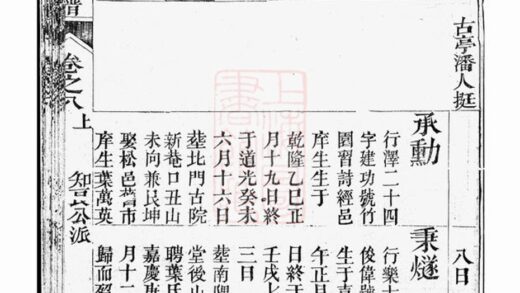 古亭潘人挺
八日
承勳
行澤二十四
字建功號竹
園習詩經邑
庠生生于
乾隆乙巳正
月十九日終
于道光癸未
六月十六日
塟北門古院
新菴口丑山
未向兼艮坤
娶松邑舊市
庠生葉萬英
秉燧
行樂十
俊偉號
生于嘉
午正月
日終于
壬戌七
三日
塟南隅
堂後山
聘葉氏
嘉慶庚
月十二
歸而
譜
卷之八
上
公派